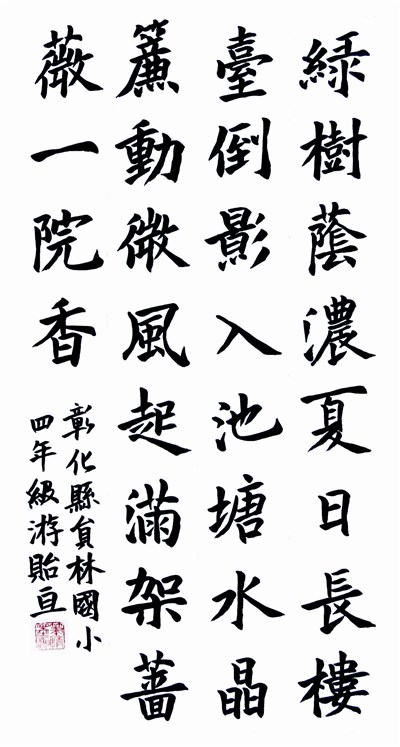 綠樹蔭濃夏日長樓
臺倒影入池塘水晶
簾動微風起滿架薔
薇一院香
彰化縣員林國小
四年級游貽亘